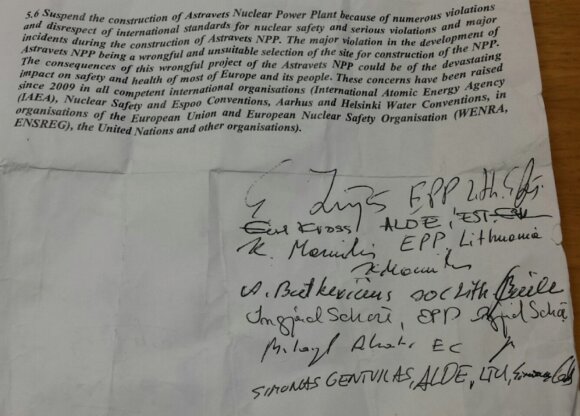 5.6 Suspend the construction of Astravets Nuclear Power Plant because of numerous violations
and disrespect of international standards for nuclear safety and serious violations and major
incidents during the construction of Astravets NPP. The major violation in the development of
Astravets NPP being a wrongful and unsuitable selection of the site for construction of the NPP.
The consequences of this wrongful project of the Astravets NPP could be of the devastating
impact on safety and health of most of Europe and its people. These concerns have been raised
since 2009 in all competent international organisations (International Atomic Energy Agency
(IAEA), Nuclear Safety and Espoo Conventions, Aarhus and Helsinki Water Conventions, in
organisations of the European Union and European Nuclear Safety Organisation (WENRA,
ENSREG), the United Nations and other organisations).
EPP Lith.
Kross ALDE, EST.
K. EPP, Lithuania
A. Butkevicius SOC Lith
Ingjerd Schou, EPP
EC
SIMONAS GENTVILAS, ALDE, LTU,